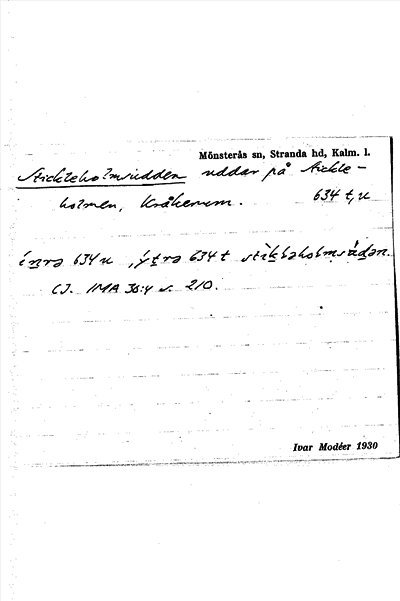 Mönsterås sn, Stranda hd, Kalm. l.
Stickleholmsudden uddar på Stickle-
holmen, Kråkerum. 634 t, u
ínrə 634 u, ýtrə 634 t
CJ. IMA 30:4 s. 210.
Ivar Modéer 1930